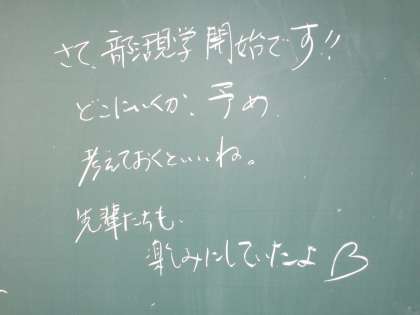 さて、部活見学開始です!!
どこにいくか、予め
考えておくといいね。
先輩たちも、
楽しみにしていたよ